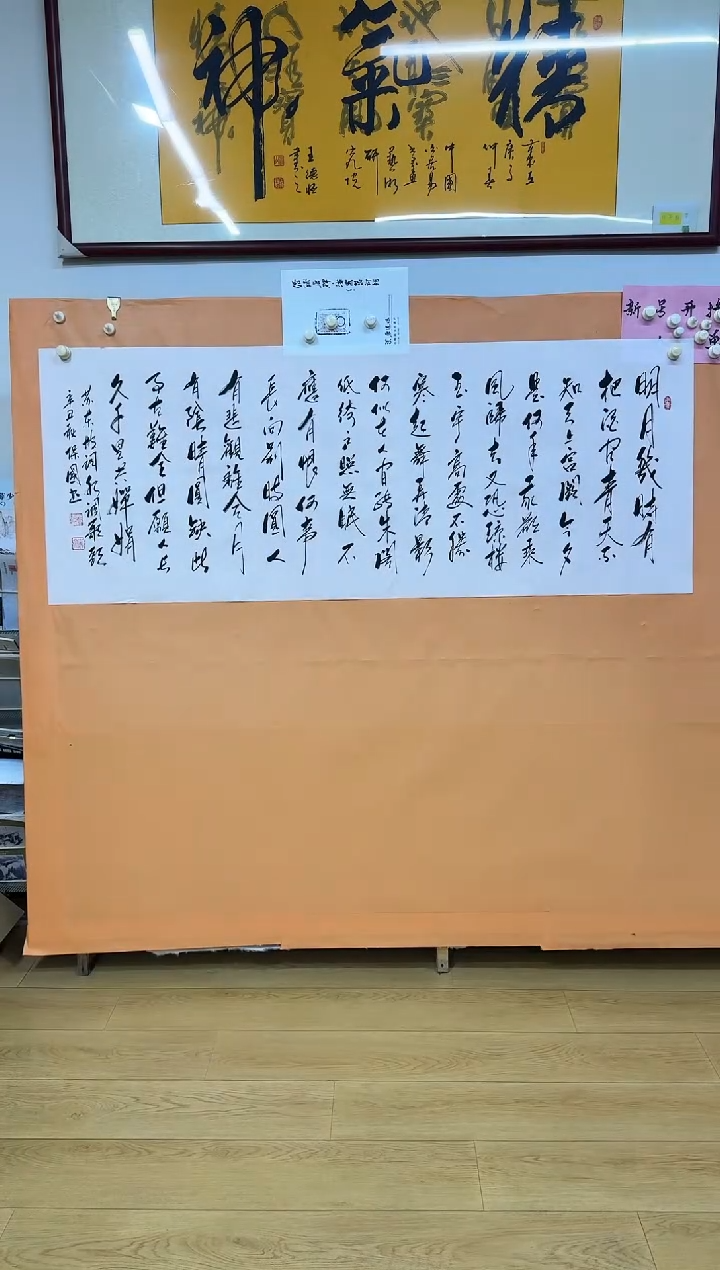 精氣神
明月幾時有
把酒问青天不
知天上宮闕今夕
是何年我欲乘
風歸去又恐琼楼
玉宇高處不勝
寒起舞弄清影
何似在人间转朱阁
低绮户照无眠不
應有恨何事
長向别時圓人
有悲觀離合月
有陰晴圓缺此
事古難全但願人长
久千里共嬋娟
苏东坡词水调歌頭
辛丑秋保國书
新号开